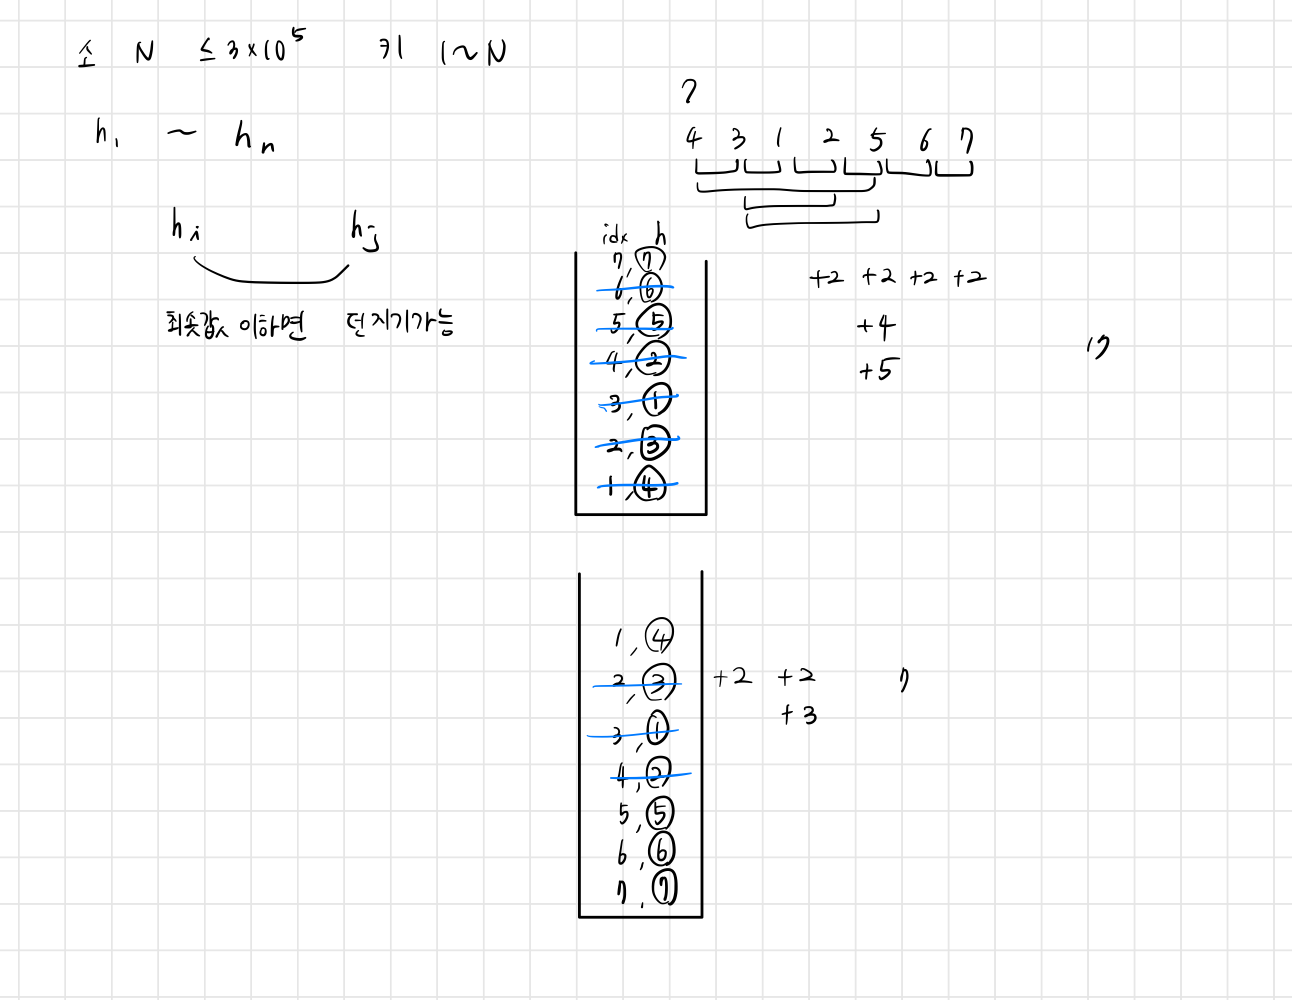 소 N ≤ 3×10⁵ 키 1~N
h₁ ~ hₙ
?
4 3 1 2 5 6 7
hᵢ hⱼ
최솟값 이하면 던지기가능
idx h
7, 7
6, 6
5, 5
4, 2
3, 1
2, 3
1, 4
+2 +2 +2 +2
+4
+5
17
1, 4
2, 3
3, 1
4, 2
5, 5
6, 6
7, 7
+2 +2
+3
7